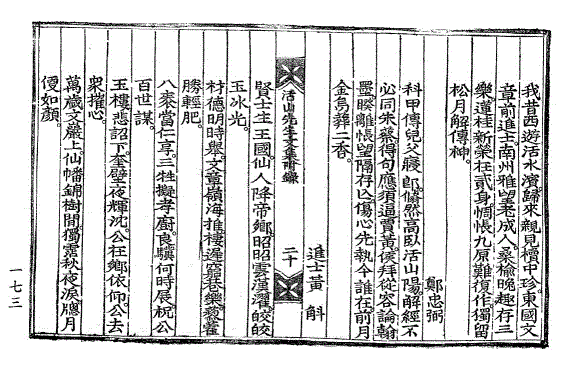 我昔西遊活水濱歸來親見櫝中珍東國文
章前進士南州雅望老成人桑楡晩趣存三
樂蓮桂新榮在貳身惆悵九原難復作獨留
松月解傳神
鄭忠弼
科甲傳兒父寢郎翛然高臥活山陽解經不
必同朱蔡得句應須逼賈黃俟拜從容論翰
墨暌離悵望隔存亡傷心先執今誰在前月
金烏葬二香
活山先生文集附錄
二十
進士黃㪺
賢士生王國仙人降帝鄉昭昭雲漢濯皎皎
玉冰光
材德明時擧文章嶺海推棲遲窮巷樂藜藿
勝輕肥
八泰當仁享三牲擬孝廚良驥何時展祝公
百世謀
玉樓悲詔下奎壁夜輝沈公在鄉依仰公去
衆摧心
萬歲文嚴上仙幡錦樹間獨露秋夜淚隱月
便如顔
一七三